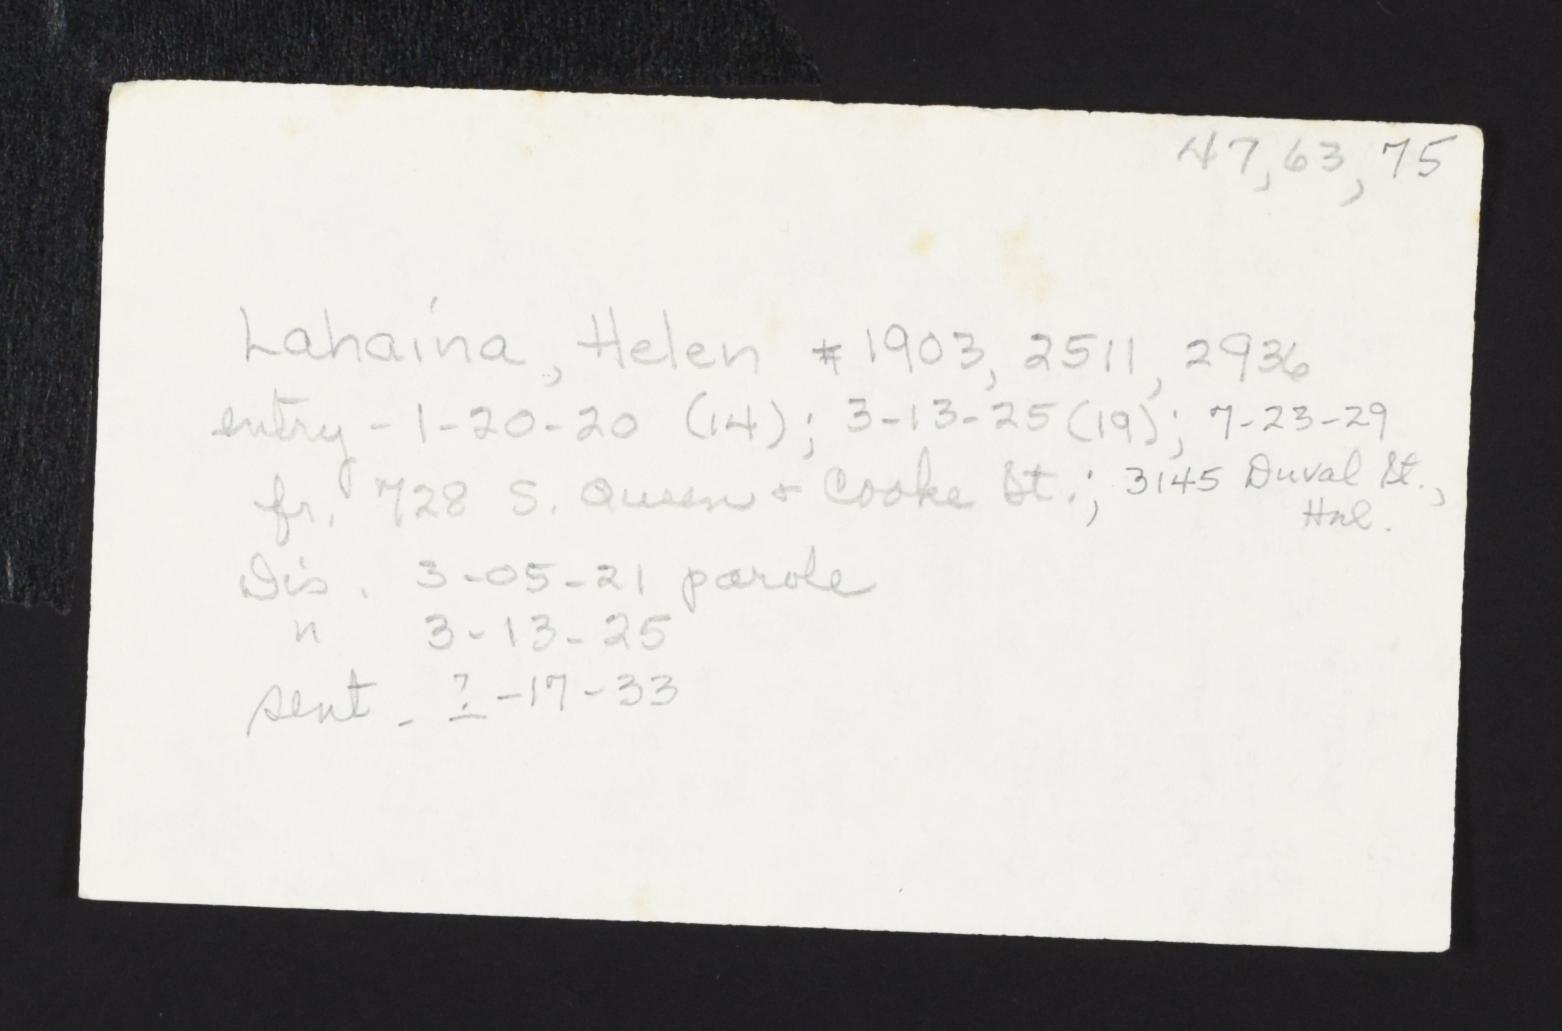 47, 63, 75
Lahaina, Helen # 1903, 2511, 2936
entry - 1-20-20 (14); 3-13-25 (19); 7-23-29
fr. 728 S. Queen & Cooke St.; 3145 Duval St., Hnl.
Dis. 3-05-21 parole
" 3-13-25
sent - ?-17-33